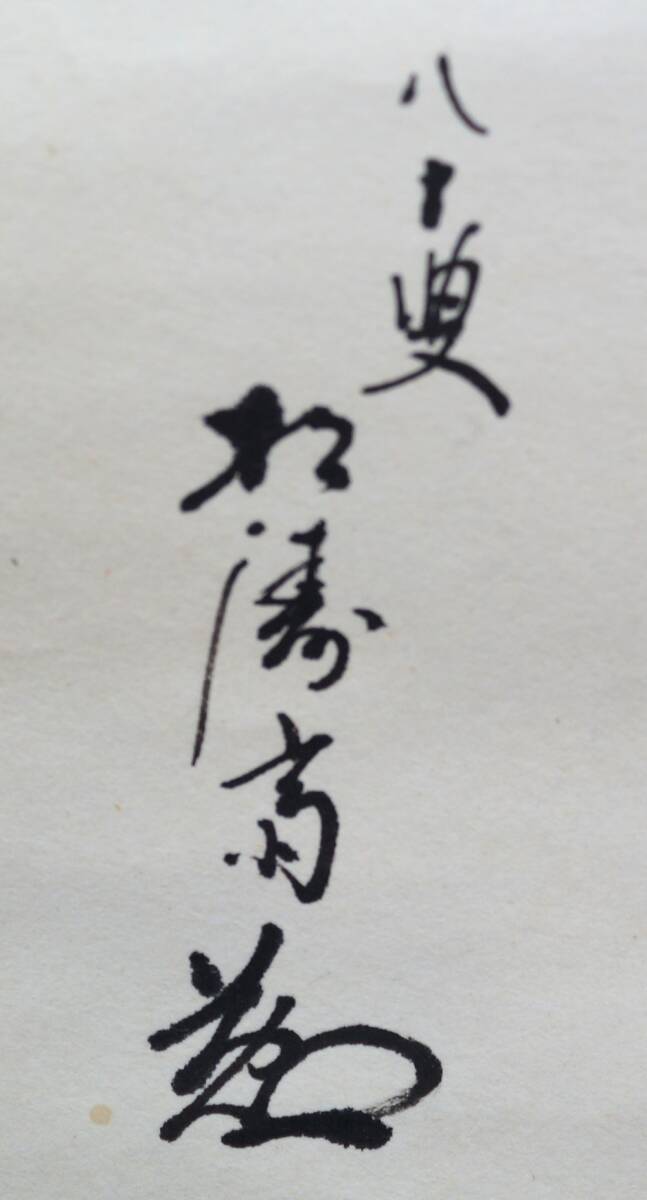 八十叟
松濤斎